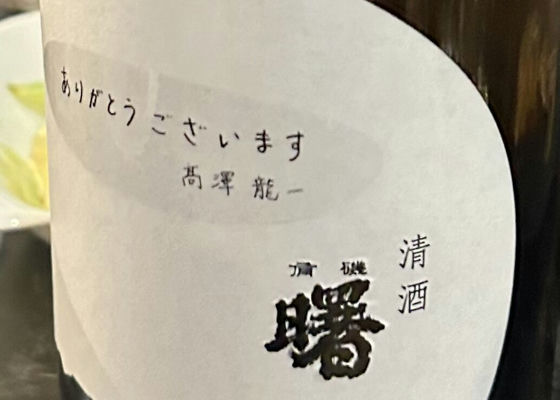 ありがとうございます
髙澤 龍一
清酒
有磯
曙